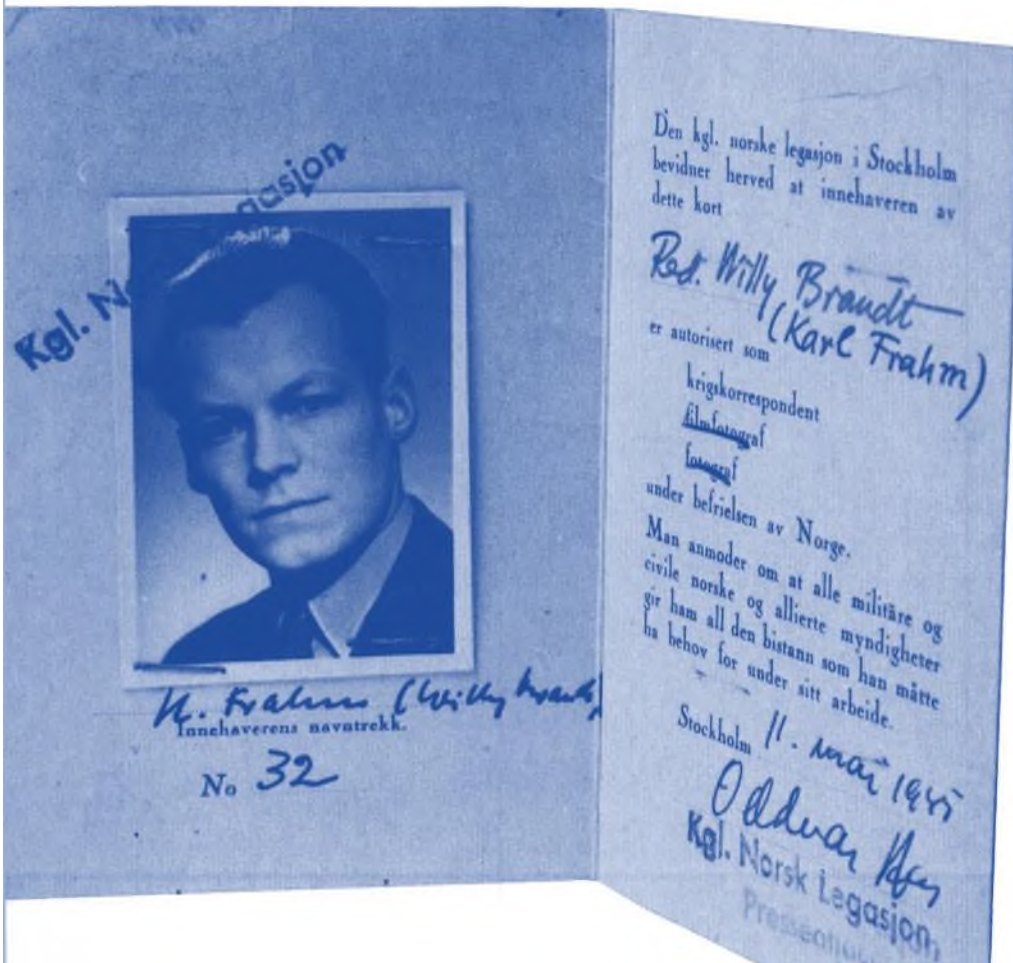 Kgl. No gasjon
H. Frahm (Willy Brandt)
Innehaverens navntrekk.
No 32
Den kgl. norske legasjon i Stockholm
bevidner herved at innehaveren av
dette kort
Red. Willy Brandt
(Karl Frahm)
er autorisert som
krigskorrespondent
filmfotograf
fotograf
under befrielsen av Norge.
Man anmoder om at alle militäre og
civile norske og allierte myndigheter
gir ham all den bistann som han måtte
ha behov for under sitt arbeide.
Stockholm 11. mai 1945
Oddvar
Kgl. Norsk Legasjon